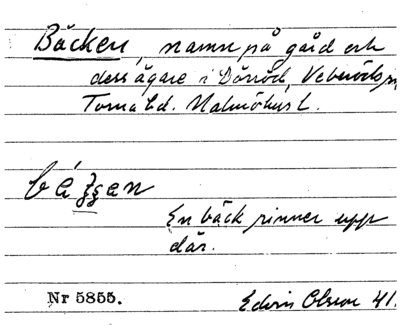 Bäcken, namn på gård och
dess ägare i Dörröd, Veberöds sn
Torna hd. Malmöhus l.
En bäck rinner upp
där.
Nr 5855.
Edvin Olsson 41.